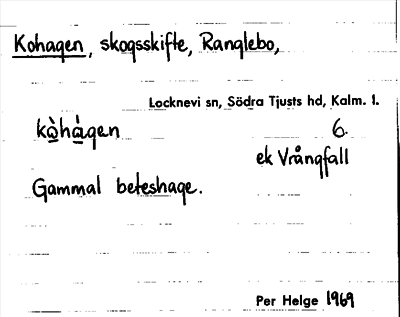 Kohagen, skogsskifte, Ranglebo,
Locknevi sn, Södra Tjusts hd, Kalm. l.
kòhàgen 6.
ek Vrångfall
Gammal beteshage.
Per Helge 1969